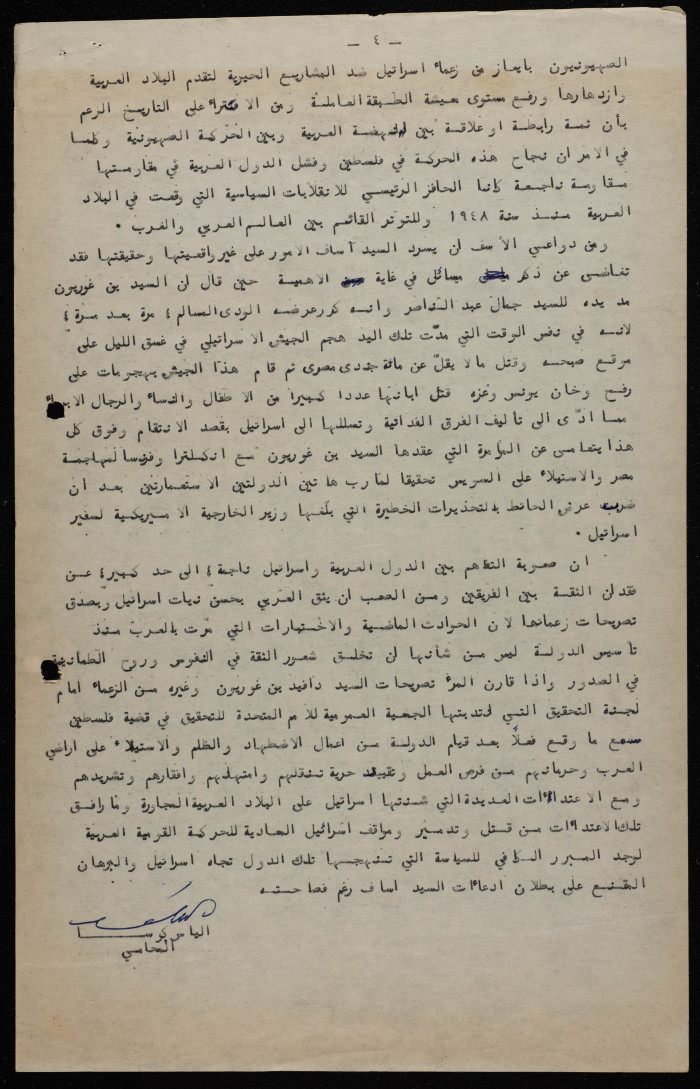 — ٤ —
الصهيونيون بايعاز من زعماء اسرائيل ضد المشاريع الحيوية لتقدم البلاد العربية
وازدهارها ورفع مستوى معيشة الطبقة العاملة ومن الافتراء على التاريخ الزعم
بأن ثمة رابطة او علاقة بين النهضة العربية وبين الحركة الصهيونية وكلما
في الامر ان نجاح هذه الحركة في فلسطين وفشل الدول العربية في مقاومتها
مقاومة ناجعة كانا الحافز الرئيسي للانقلابات السياسية التي وقعت في البلاد
العربية منذ سنة ١٩٤٨ وللتوتر القائم بين العالم العربي والغرب .
ومن دواعي الأسف ان يسرد السيد آساف الامور على غير واقعيتها وحقيقتها فقد
تغاضى عن ذكر مسائل في غاية الاهمية حين قال ان السيد بن غوريون
مد يده للسيد جمال عبد الناصر وانه كرر عرضه الودي المسالم ، مرة بعد مرة ،
لانه في نفس الوقت التي مدّت تلك اليد هجم الجيش الاسرائيلي في غسق الليل على
موقع صبحه وقتل ما لا يقلّ عن مائة جندى مصرى ثم قام هذا الجيش بهجومات على
رفح وخان يونس وغزه قتل ابانها عددا كبيرا من الاطفال والنساء والرجال الابرياء
مما ادّى الى تأليف الفرق الفدائية وتسللها الى اسرائيل بقصد الانتقام وفوق كل
هذا يتعامى عن المؤامرة التي عقدها السيد بن غوريون مع انكلترا وفرنسا لمهاجمة
مصر والاستيلاء على السويس تحقيقا لمآرب هاتين الدولتين الاستعمارتين بعد ان
ضرب عرض الحائط بالتحذيرات الخطيرة التي بلّغها وزير الخارجية الاميريكية لسفير
اسرائيل .
ان صعوبة التفاهم بين الدول العربية واسرائيل ناجمة ، الى حد كبير ، عن
فقدان الثقة بين الفريقين ومن الصعب ان يثق العربي بحسن نيات اسرائيل ويصدق
تصريحات زعمائها لان الحوادث الماضية والاختبارات التي مرّت بالعرب منذ
تأسيس الدولة ليس من شأنها ان تخلق شعور الثقة في النفوس وروح الطمانينة
في الصدور واذا قارن المرء تصريحات السيد دافيد بن غوريون وغيره من الزعماء امام
لجنة التحقيق التي انتدبتها الجمعية العمومية للامم المتحدة للتحقيق في قضية فلسطين
مع ما وقع فعلاً بعد قيام الدولة من اعمال الاضطهاد والظلم والاستيلاء على اراضي
العرب وحرمانهم من فرص العمل وتقييد حرية تنقلهم وامتهانهم وافقارهم وتشريدهم
ومع الاعتداءات العديدة التي شنتها اسرائيل على البلاد العربية المجاورة وما رافق
تلك الاعتداءات من قتل وتدمير ومواقف اسرائيل العادية للحركة القومية العربية
لوجد المبرر الكافي للسياسة التي تنتهجها تلك الدول تجاه اسرائيل والبرهان
المقنع على بطلان ادعاءات السيد اساف رغم فصاحته
الياس كوسا
المحامي